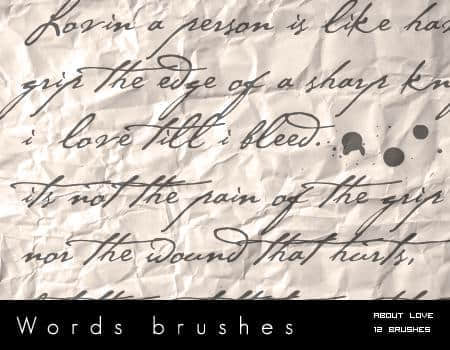 Lovin a person is like hav
grip the edge of a sharp kn
i love till i bleed.
its not the pain of the grip
nor the wound that hurts,
Words brushes
ABOUT LOVE
12 BRUSHES